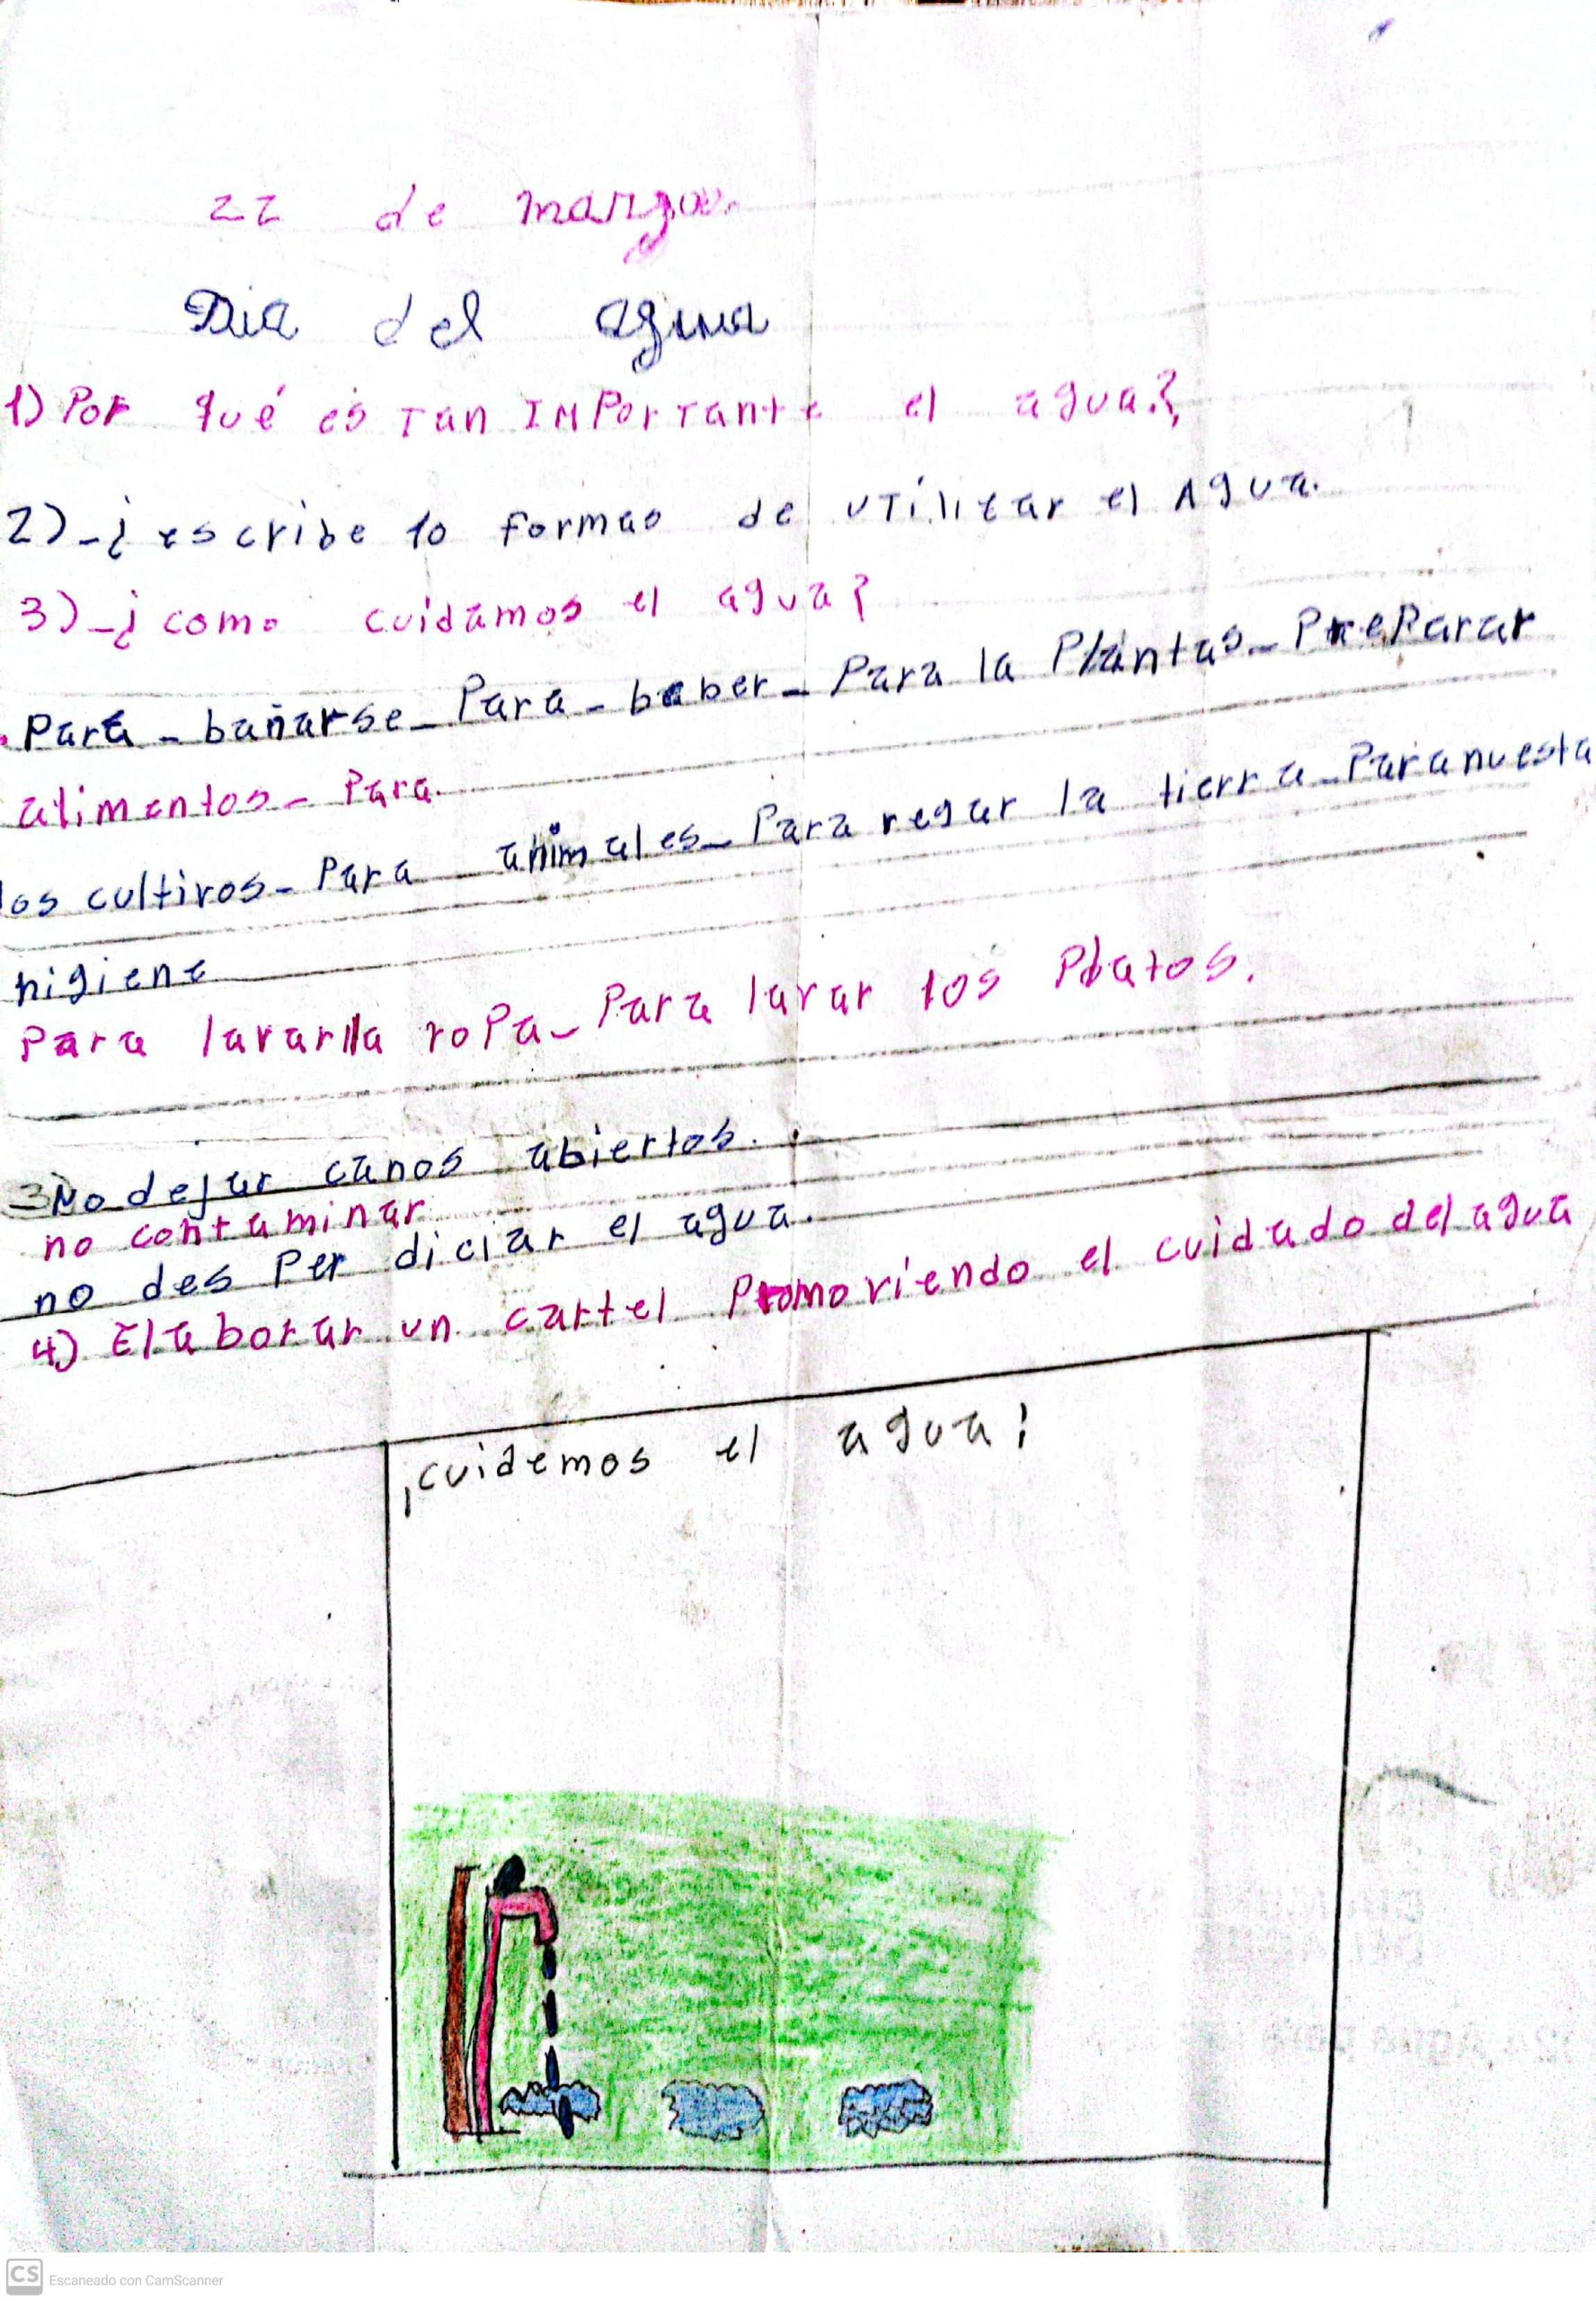 22 de marzo.
Dia del agua
1) Por qué es Tan IMPorTante el agua?
2)-¿escribe 10 formas de uTilizar el Agua.
3)-¿como cuidamos el agua?
Para - bañarse - Para - beber - Para la Plantas - PreParar
alimentos - Para.
los cultivos - Para animales - Para regar la tierra - Para nuesta
higiene
Para lavar la roPa - Para lavar los Platos.
3 No dejar canos abiertos.
no contaminar
no des Per diciar el agua.
4) Elaborar un cartel Promoviendo el cuidado del agua
¡cuidemos el agua!
CS Escaneado con CamScanner